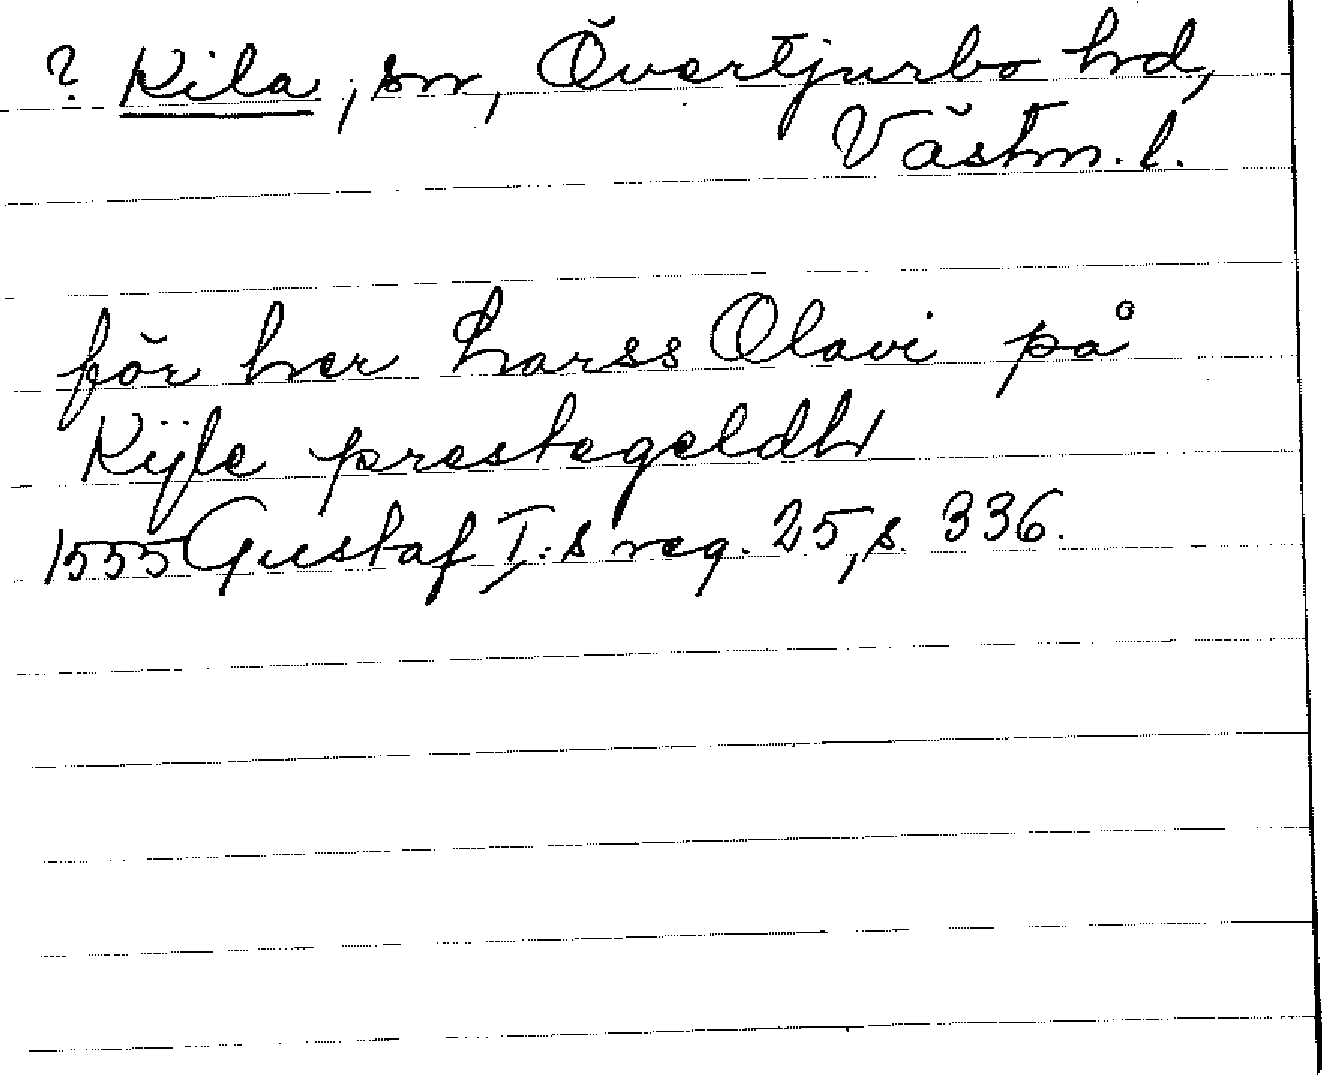 ? Kila, sn, Övertjurbo hd,
Västm. l.
för her Larss Olavi på
Kÿle prestegeldh
1555 Gustaf I:s reg. 25, s. 336.